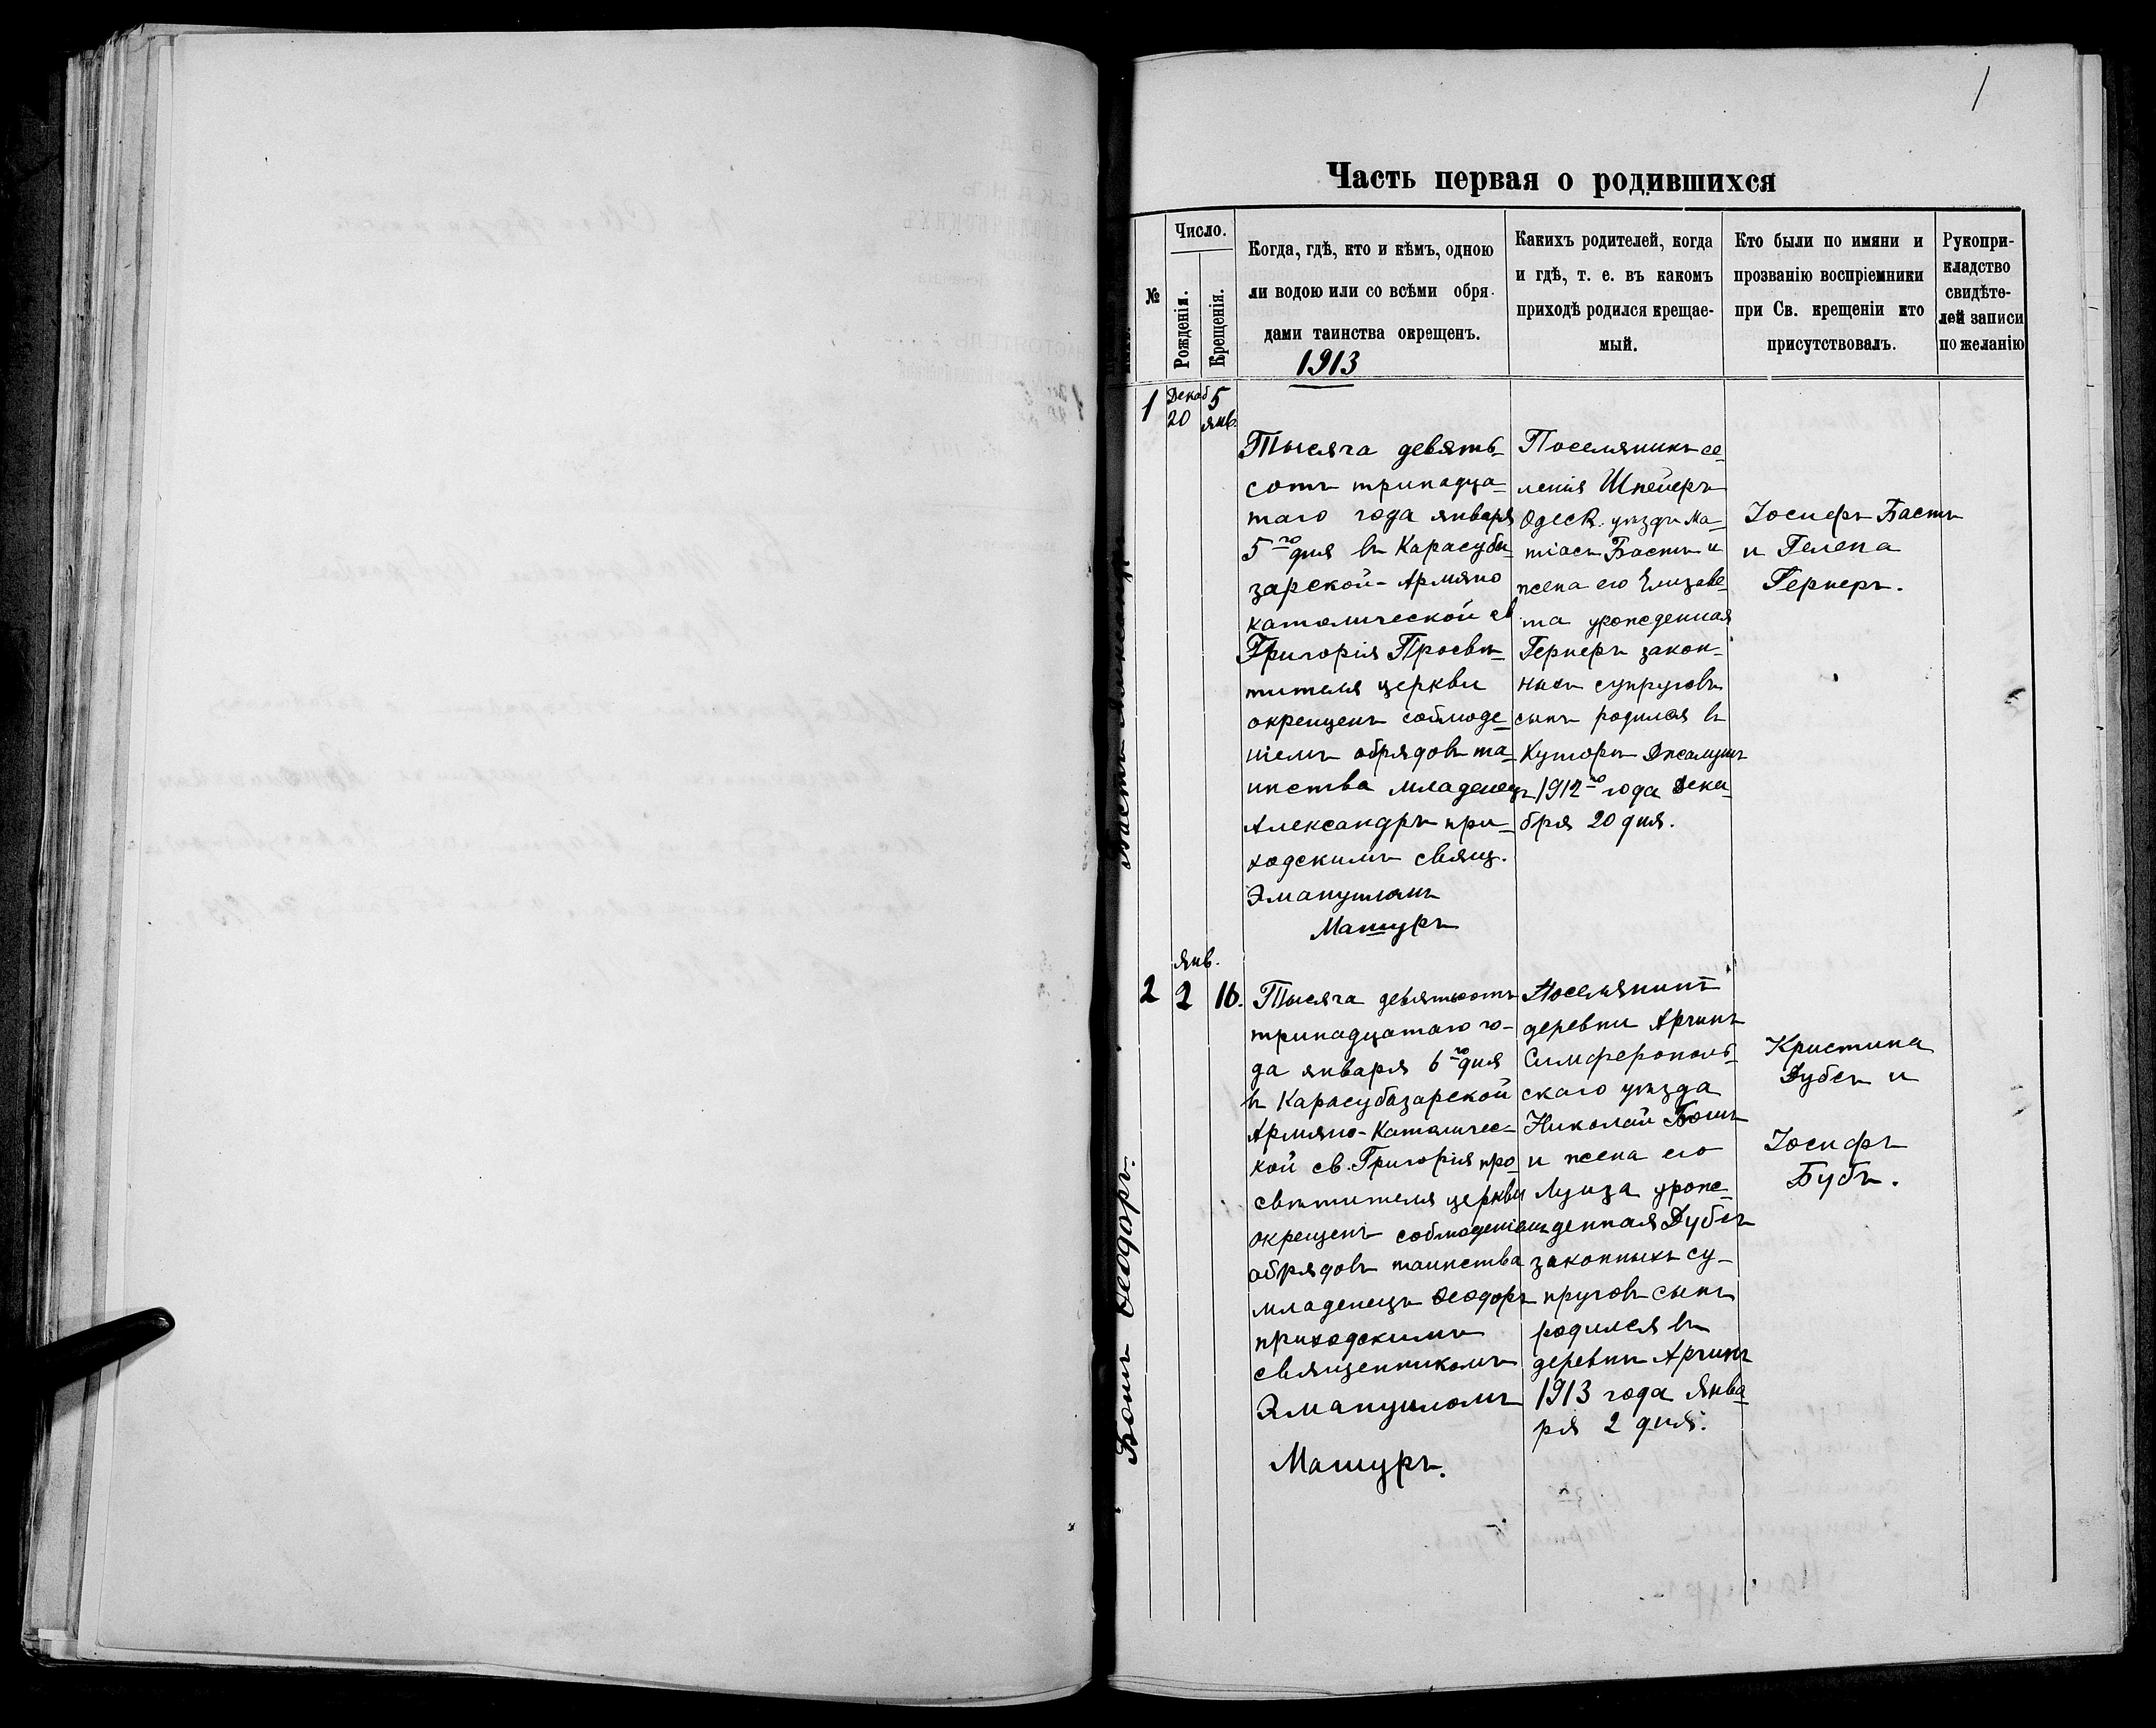 1
Часть первая о родившихся
№
Число.
Рожденія.
Крещенія.
Когда, гдѣ, кто и кѣмъ, одною
ли водою или со всѣми обря-
дами таинства окрещенъ.
1913
Какихъ родителей, когда
и гдѣ, т. е. въ какомъ
приходѣ родился крещае-
мый.
Кто были по имяни и
прозванію воспріемники
при Св. крещеніи кто
присутствовалъ.
Рукопри-
кладство
свидѣте-
лей записи
по желанію
1
Декаб
20
5
янв.
Тысяча девять-
сотъ тринадца-
таго года января
5го дня въ Карасуба-
зарской-Армяно
католической св
Григорія Просвѣ-
тителя церкви
окрещенъ соблюде-
ніемъ обрядовъ та-
инства младенецъ
Александръ при-
ходскимъ свящ.
Эмануиломъ
Машуръ
Поселянинъ се-
ленія Шпейеръ
Одесск. уѣзда Ма-
тіасъ Бастъ и
жена его Елизаве-
та урожденная
Гернеръ закон-
ныхъ супруговъ
сынъ родился въ
Хуторѣ
1912го года Дека-
бря 20 дня.
Іосифъ Бастъ
и Гелена
Гернеръ.
Бастъ Александръ
2
Янв.
2
16.
Тысяча девятьсотъ
тринадцатаго го-
да января 6го дня
въ Карасубазарской
Армяно-Католичес-
кой св. Григорія про-
свѣтителя церкви
окрещенъ соблюденіемъ
обрядовъ таинства
младенецъ Ѳеодоръ
приходскимъ
священникомъ
Эмануиломъ
Машуръ.
Поселянинъ
деревни Аргинъ
Симферополь-
скаго уѣзда
Николай Бошъ
и жена его
Луиза урож-
денная Дубсъ
законныхъ су-
пруговъ сынъ
родился въ
деревнѣ Аргинъ
1913 года Янва-
ря 2 дня.
Кристина
Дубсъ и
Іосифъ
Бубъ.
Бошъ Ѳеодоръ.